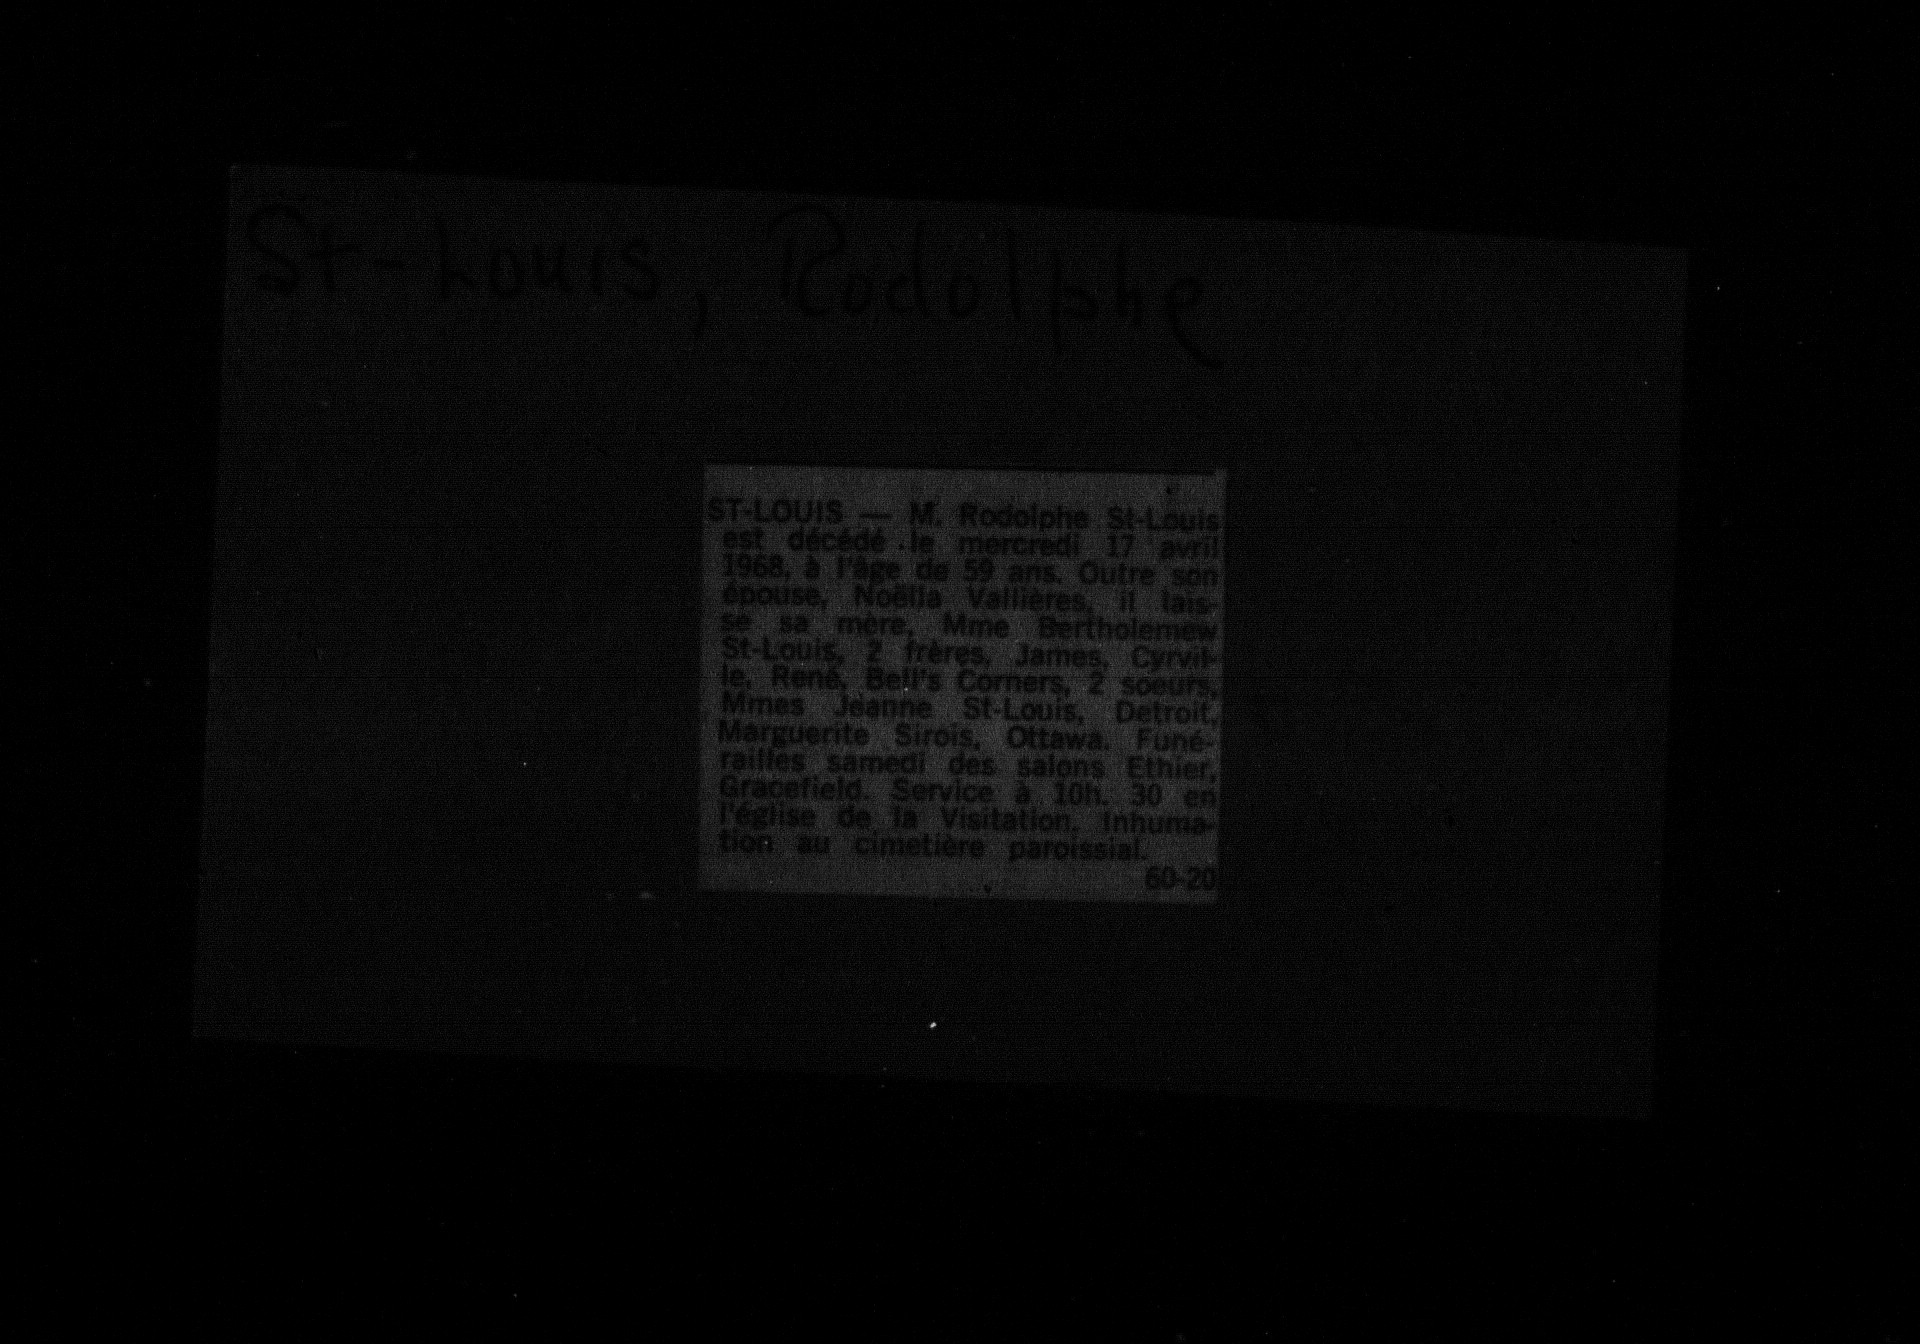 St-Louis, Rodolphe
ST-LOUIS — M. Rodolphe St-Louis
est décédé le mercredi 17 avril
1968, à l'âge de 59 ans. Outre son
épouse, Noëlla Vallières, il lais-
se sa mère, Mme Bertholemew
St-Louis, 2 frères, James, Cyrvil-
le, René, Bell's Corners, 2 soeurs,
Mmes Jeanne St-Louis, Detroit,
Marguerite Sirois, Ottawa. Funé-
railles samedi des salons Ethier,
Gracefield. Service à 10h. 30 en
l'église de la Visitation. Inhuma-
tion au cimetière paroissial.
60-20